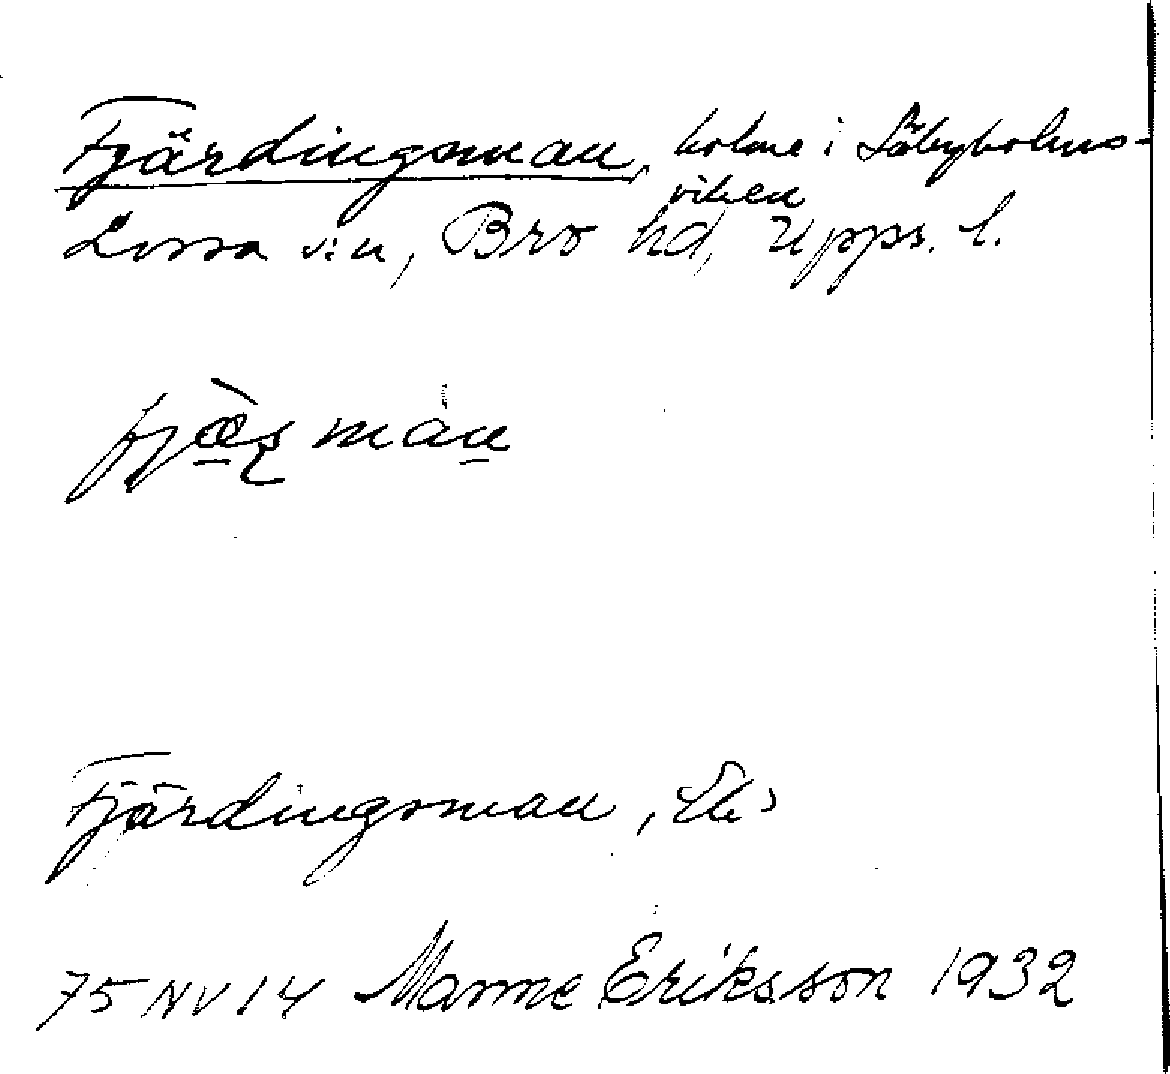 Fjärdingsman, holme i Säbyholms-
viken
Lossa s:n, Bro hd, Upps. l.
Fjärdingsman, Ek
75 NV 14 Manne Eriksson 1932